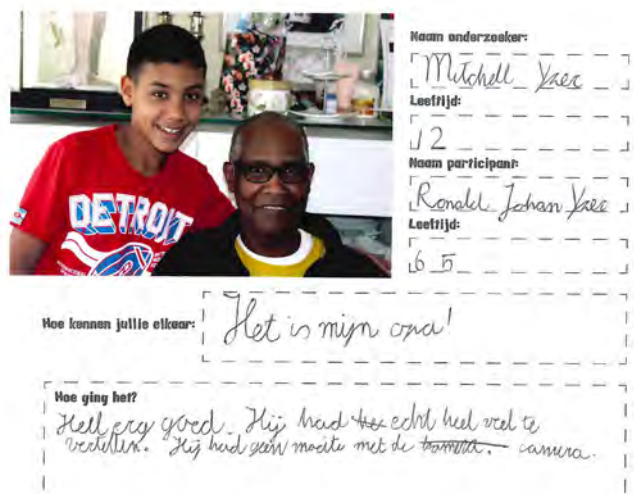 DETROIT
Naam onderzoeker:
Mitchell Yzer
Leeftijd:
12
Naam participant:
Ronald Johan Yzer
Leeftijd:
65
Hoe kennen jullie elkaar:
Het is mijn opa!
Hoe ging het?
Hell erg goed. Hij had echt heel veel te
vertellen. Hij had geen moeite met de camera.